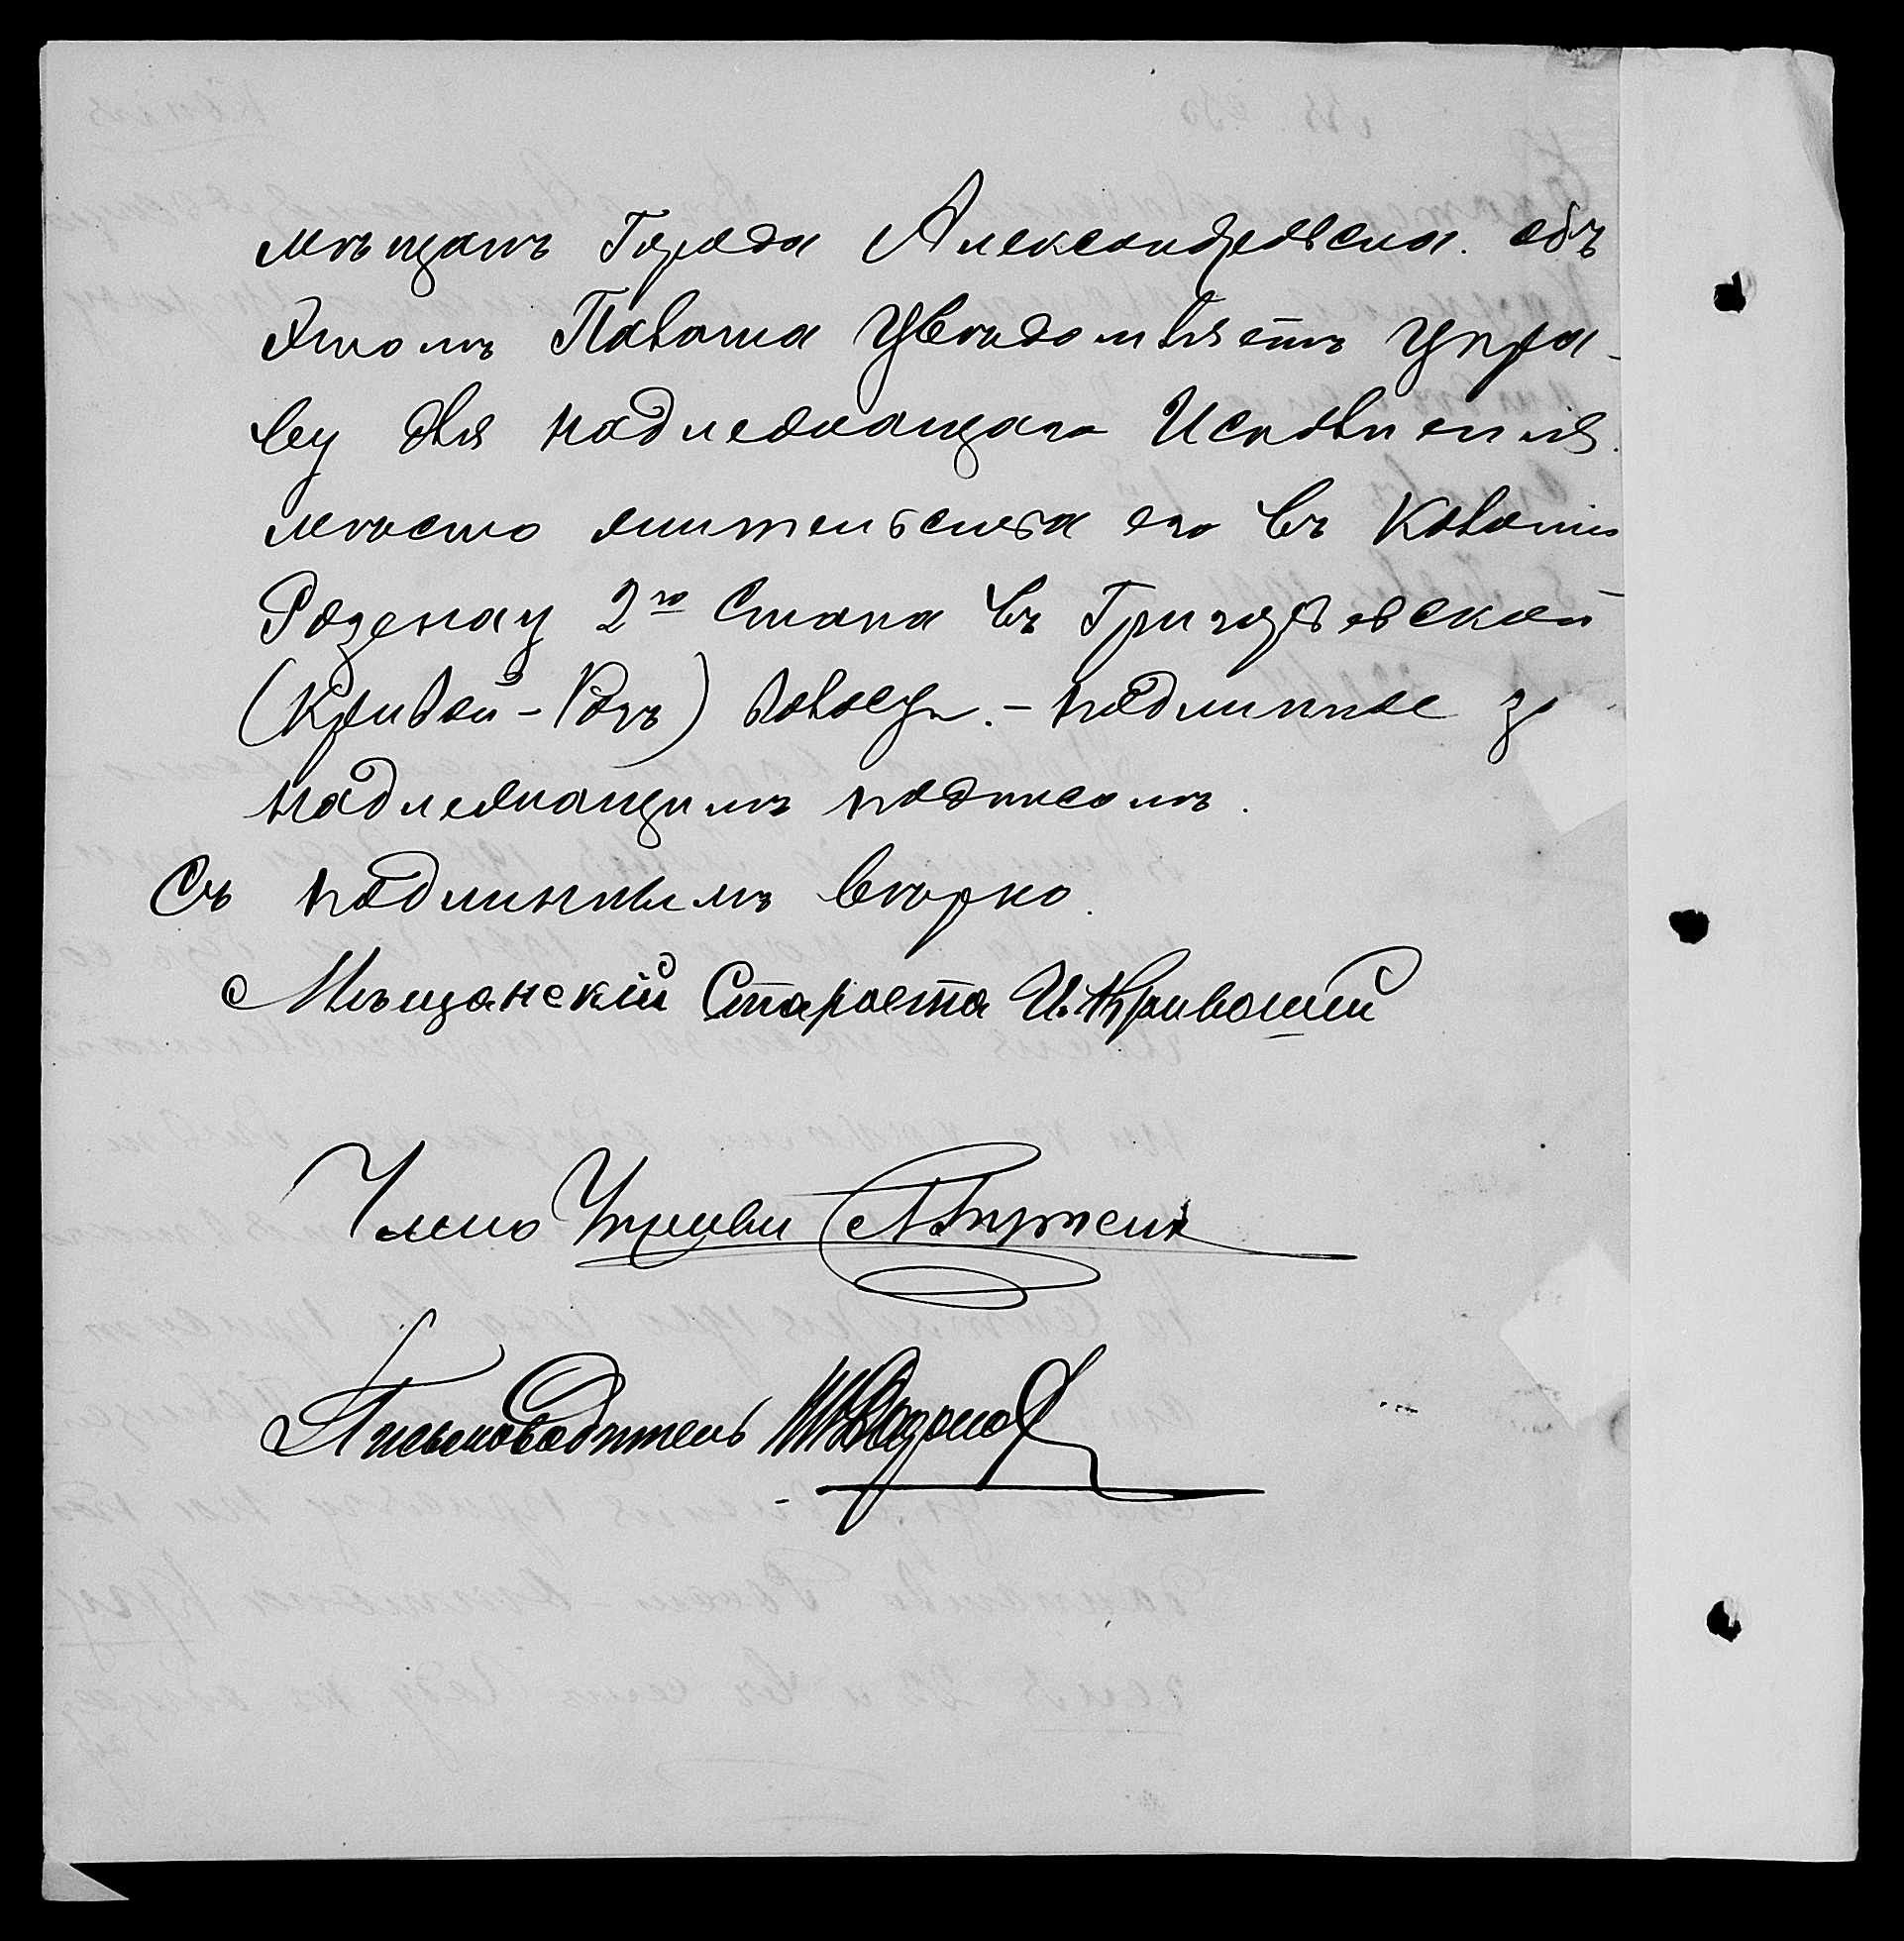 мѣщанъ Города Александровска. объ
Этомъ Палата Увѣдомляетъ Упра-
ву для надлежащаго Исполненія.
мѣсто жительства его въ Колоніи
Розенау 2го Стана въ Григорьевской
(Кривой-Рогъ) волости. - подлинное за
надлежащимъ подписомъ.
Съ подлиннымъ вѣрно.
Мѣщанскій Староста И. Кривошей
Членъ Управы
Письмоводитель